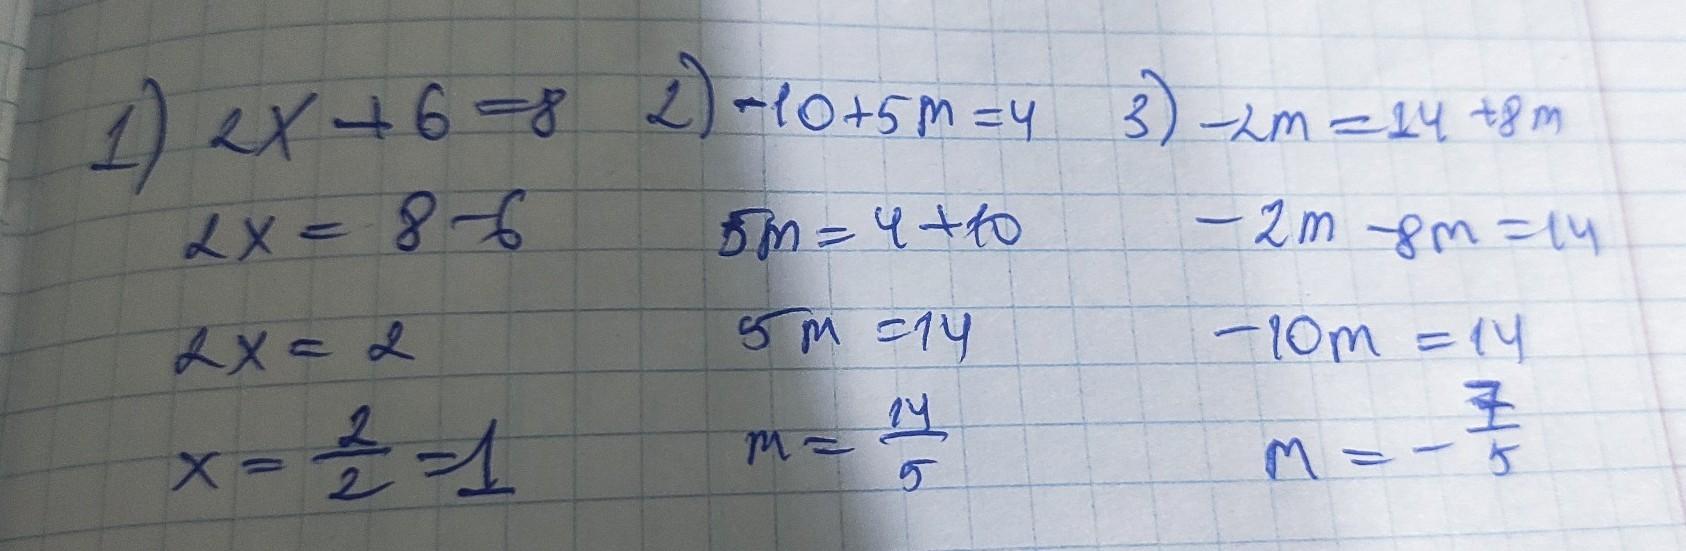 1) 2x + 6 = 8
2x = 8 - 6
2x = 2
x = 2/2 = 1
2) -10 + 5m = 4
5m = 4 + 10
5m = 14
m = 14/5
3) -2m = 14 + 8m
-2m - 8m = 14
-10m = 14
m = - 7/5